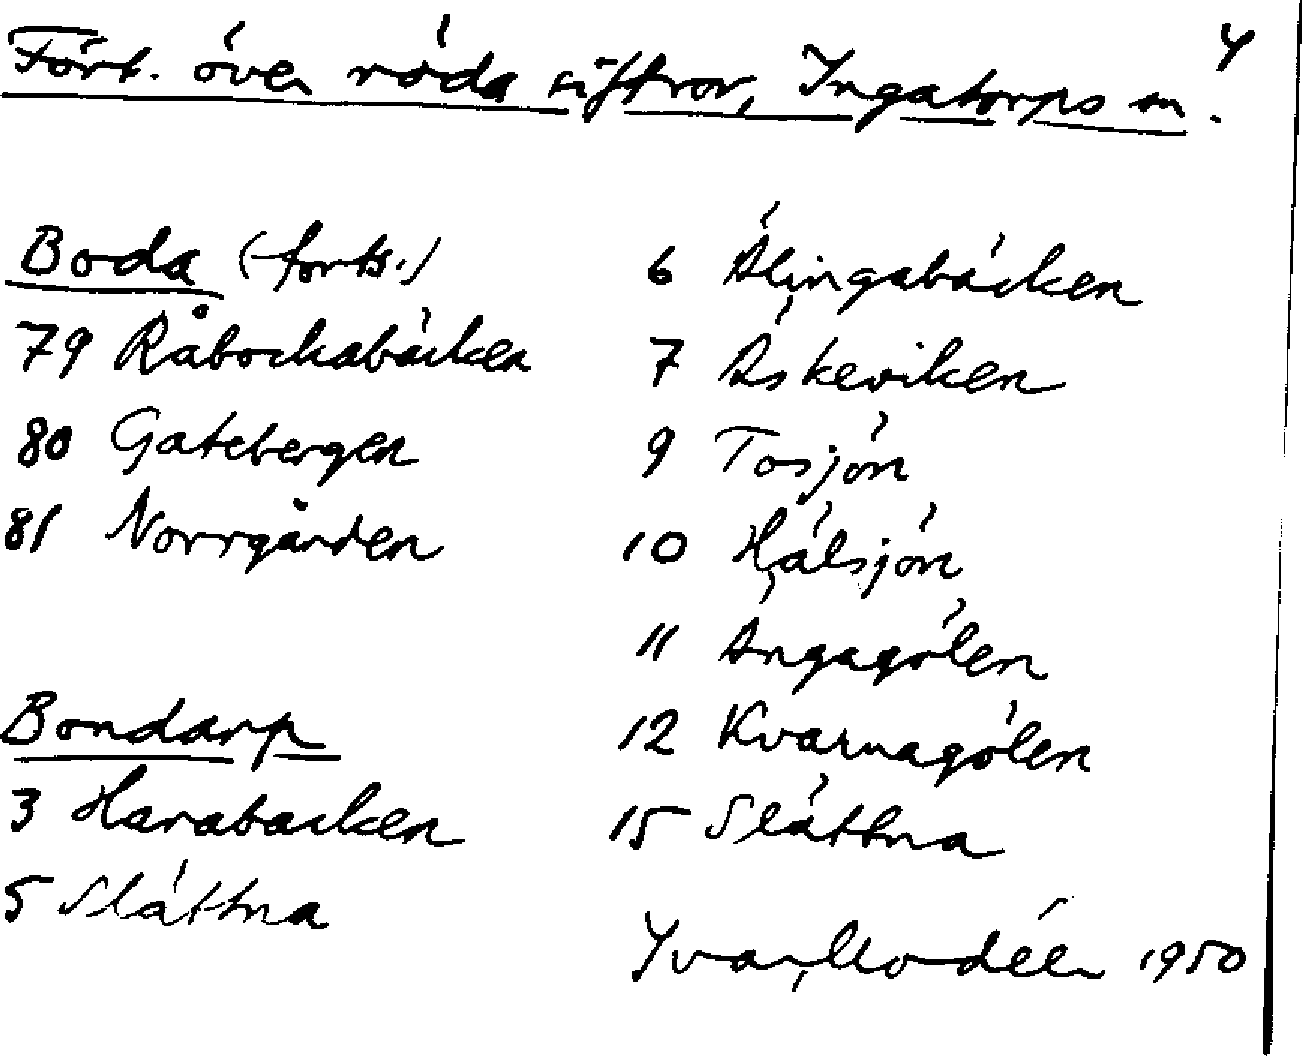 Fört. över röda siffror, Ingatorps sn. 4
Boda (forts.)
79 Råbockabäcken
80 Gatebergen
81 Norrgården
Bondarp
3 Harabacken
5 Slättna
6 Älingabäcken
7 Äskeviken
9 Tosjön
10 Hälsjön
11 Ängagölen
12 Kvarnagölen
15 Slättna
Yvar Modéer 1950